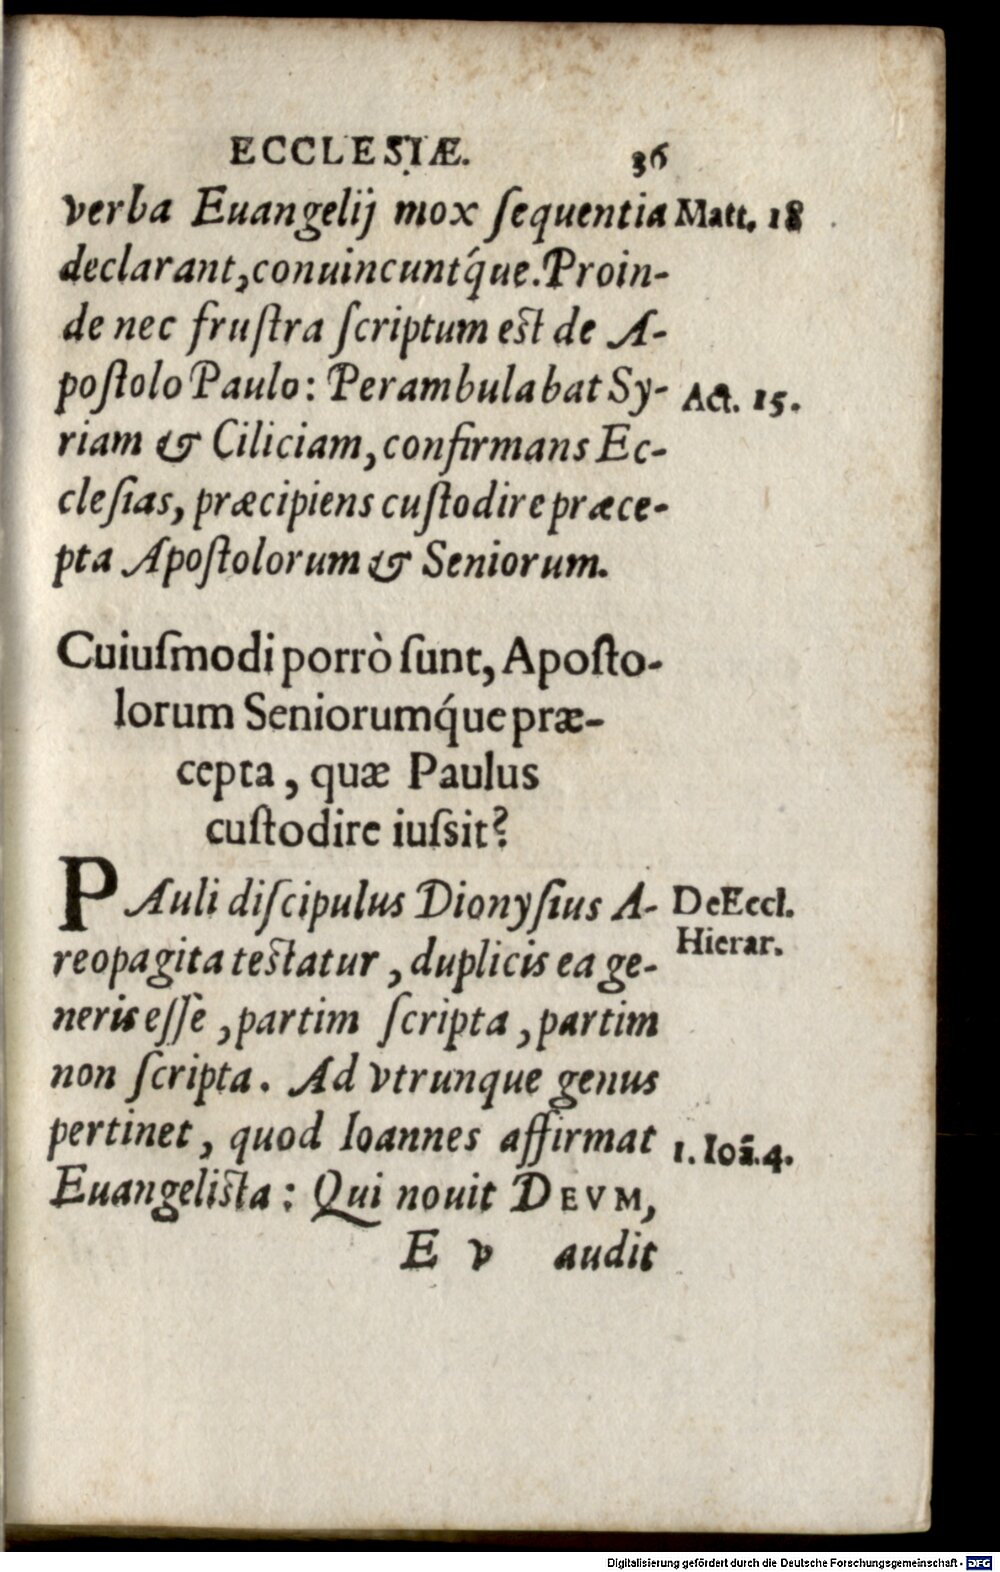 ECCLESIÆ. 36
verba Euangelij mox ſequentia Matt. 18
declarant, conuincuntq́ue. Proin-
de nec fruſtra ſcriptum eſt de A-
poſtolo Paulo: Perambulabat Sy- Act. 15.
riam & Ciliciam, confirmans Ec-
cleſias, præcipiens cuſtodire præce-
pta Apoſtolorum & Seniorum.
Cuiuſmodi porrò ſunt, Apoſto-
lorum Seniorumq́ue præ-
cepta, quæ Paulus
cuſtodire iuſsit?
PAuli diſcipulus Dionyſius A- De Eccl.
reopagita teſtatur, duplicis ea ge- Hierar.
neris eſſe, partim ſcripta, partim
non ſcripta. Ad vtrunque genus
pertinet, quod Ioannes affirmat 1. Ioā. 4.
Euangeliſta: Qui nouit DEVM,
E v audit
Digitalisierung gefördert durch die Deutsche Forschungsgemeinschaft - DFG